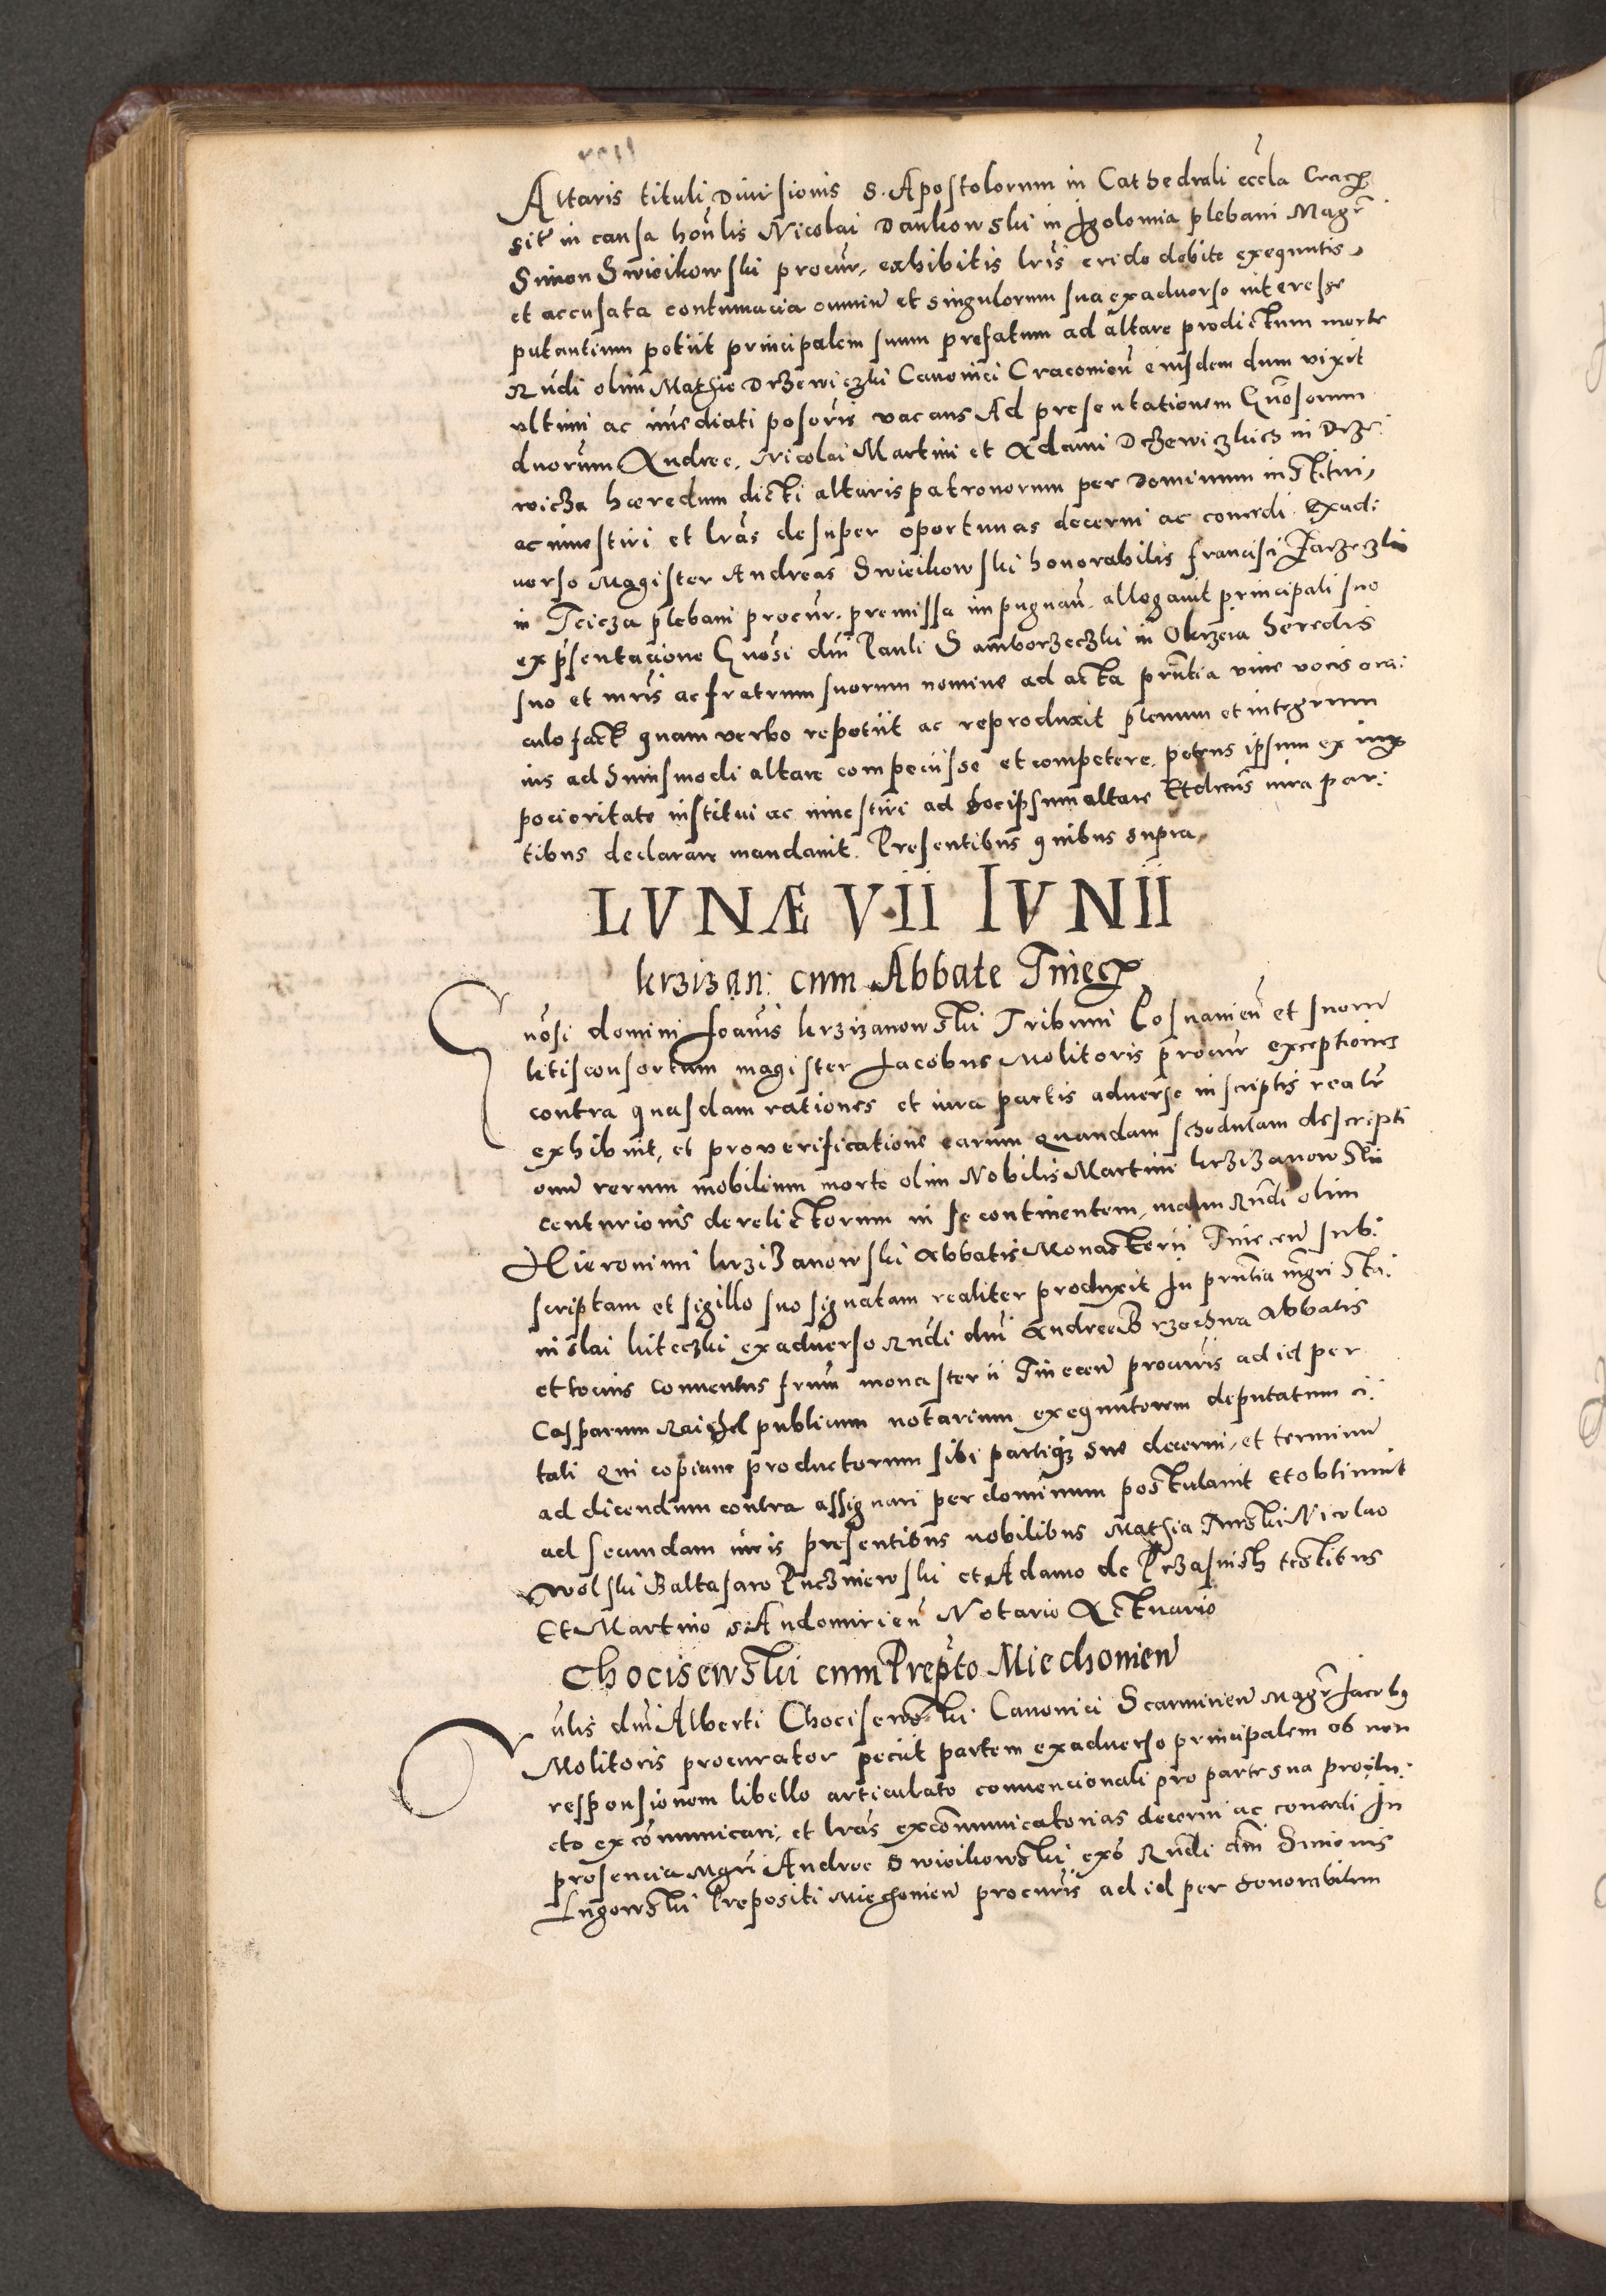 Altaris tituli Divisionis S. Apostolorum in Cathedrali eccla Crac
sit in causa honlis Nicolai Dankowski in Igolomia plebani Magr
Simon Swieikowski procur, exhibitis lris crido debite exequutis,
et accusata contumacia omniu et singulorum sua exadverso interesse
putantium petiit principalem suum prefatum ad altare predictum morte
Rndi olim Mathie Drzewiczki Canonici Cracovien eiusdem dum vixit
ultimi ac imediati posoris vacans Ad presentationem Gnosorum
duorum Andree, Nicolai Martini et Adami Drzewiczkich in Drze:
wicza hæredum dicti altaris patronorum per Dominum institui,
ac investiri et lras desuper oportunas decerni ac concedi. Exad:
verso Magister Andreas Swieikowski honorabilis Francisci Jarzeczki
in Tcicza plebani procur. premissa impugnan. allegavit principali suo
ex psentacione Gnosi dni Pauli Samborzeczki in Okrzeia heredis
suo et mris ac fratrum suorum nomine ad acta prntia vive vocis ora:
culo fact quam verbo repetiit ac reproduxit plenum et integrum
ius ad huiusmodi altare compeciisse et competere, petens ipsum ex
pocioritate institui ac investiri ad hoc ipsum altare Et dnus iura par:
tibus declarare mandavit. Presentibus quibus supra,
LVNÆ VII IVNII
krzizan: cum Abbate Tinec
Gnosi domini Joanis krzizanowski Tribuni Posnanien et suoru
litisconsortum magister Jacobus Molitoris procur exceptiones
contra quasdam rationes et iura partis adverse in scriptis realr
exhibuit, et pro verificatione earum quandam schedulam descripti
onu rerum mobilium morte olim Nobilis Martini krzizanowski
centurionis derelictorum in se continentem, manu Rndi olim
Hieronimi krzizanowski Abbatis Monasterii Tinecen sub:
scriptam et sigillo suo signatam realiter produxit In prntia mgri Sta:
nislai kiteczki exadverso Rndi dni Andreæ Brzechwa Abbatis
et tocius Conventus frum monasterii Tinecen procuris ad id per
Casparum Raichel publicum notarium exequutorem deputatum ci:
tati qui copiam productorum sibi partiq sue decerni, et terminu
ad dicendum contra assignari per dominum postulavit Et obtinuit
ad secundam iuris presentibus nobilibus Mathia Turski Nicolao
Wolski Baltasaro Puczniewski et Adamo de Przasnish testibus
Et Martino sAndomirien Notario Actuario
Chocisewski cum Prepto Miechovien
Onlis dni Alberti Chocisewski Canonici Scarmirien Magr Jacobg
Molitoris procurator peciit partem exadverso principalem ob non
responsionem libello articulato convencionali pro parte sua produ:
cto excomunicari, et lras excomunicatorias decerni ac concedi In
presencia Mgri Andree Swieikowski exo Rndi dni Simonis
Lugowski Prepositi Miechovien procuris ad id per honorabilem